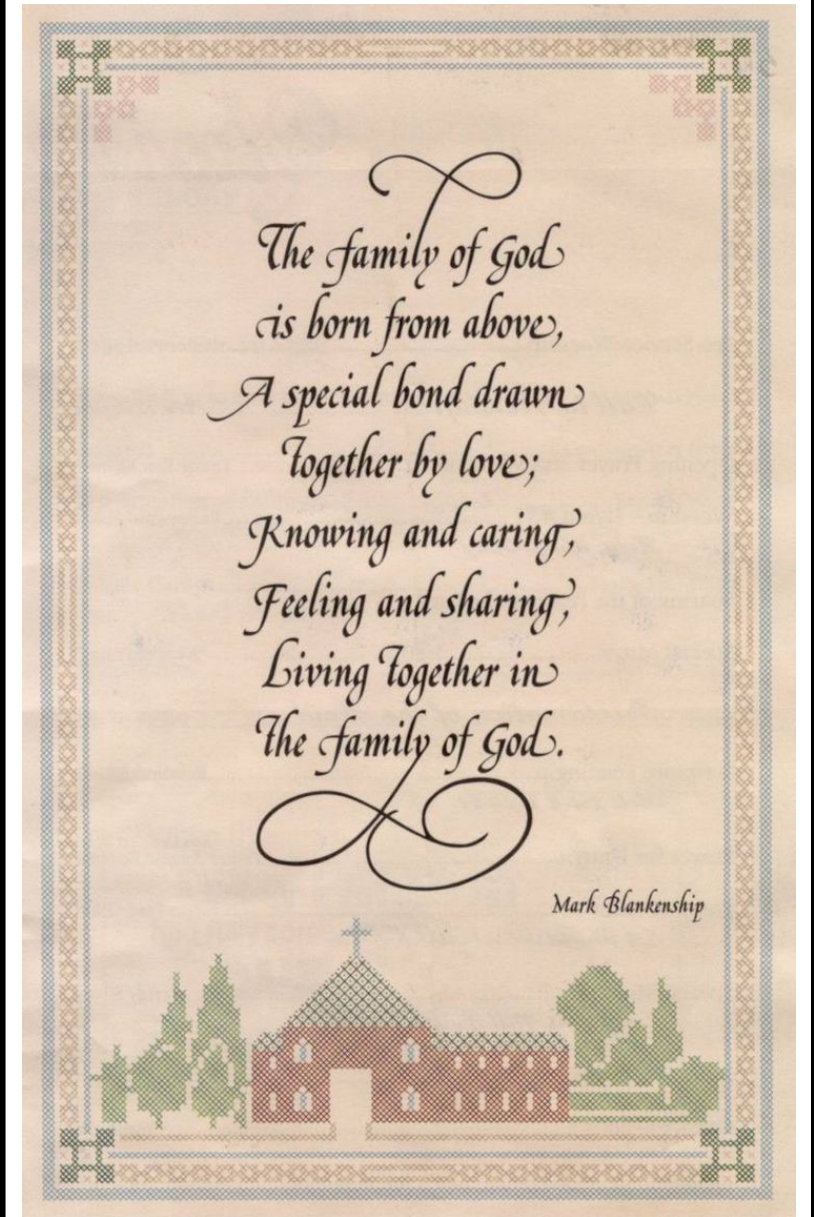 The family of God
is born from above,
A special bond drawn
Together by love;
Knowing and caring,
Feeling and sharing,
Living Together in
The family of God.
Mark Blankenship